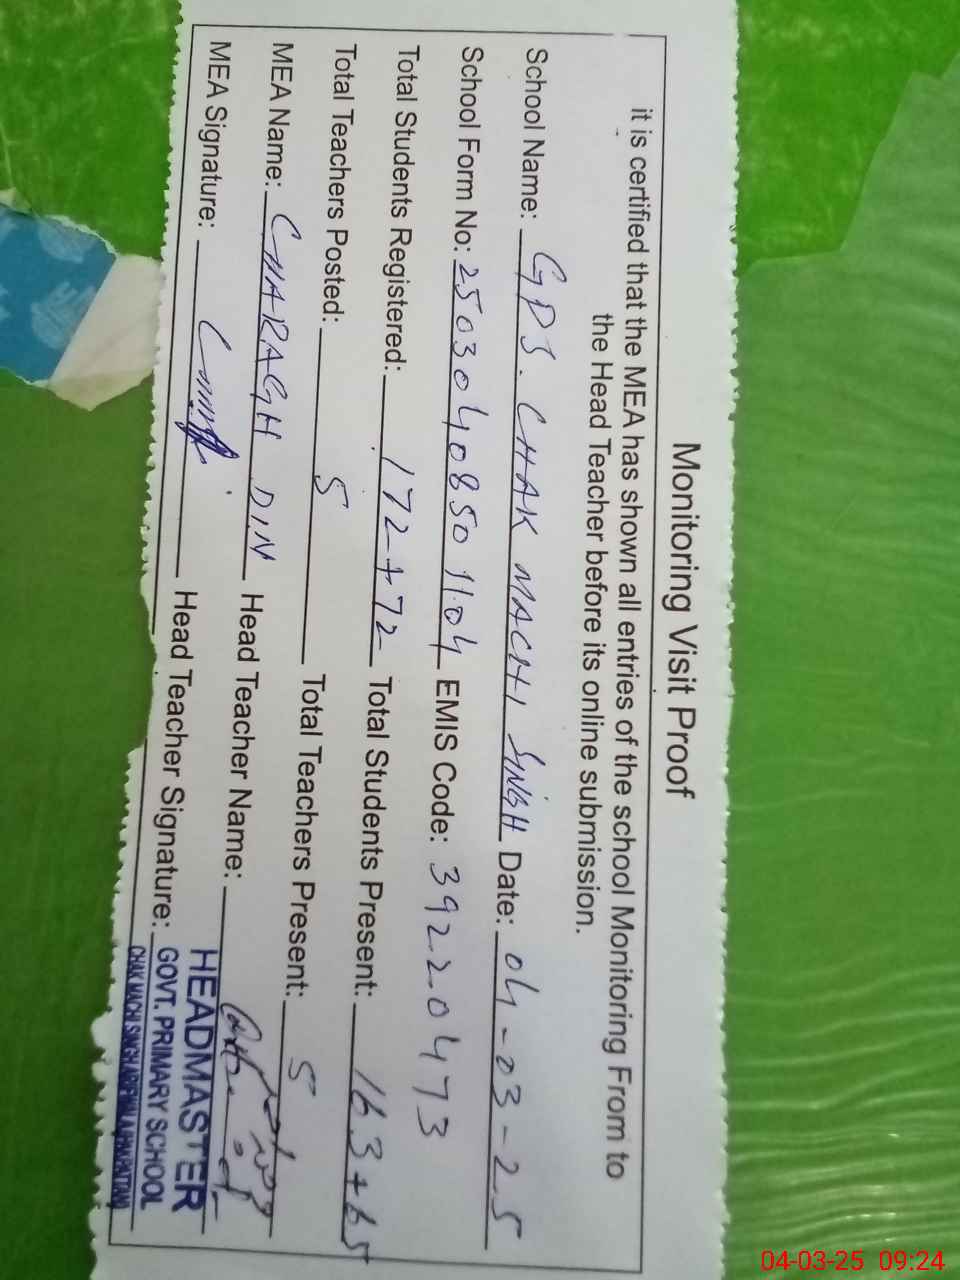 Monitoring Visit Proof
it is certified that the MEA has shown all entries of the school Monitoring From to
the Head Teacher before its online submission.
School Name: GPS. CHAK MACHI SINGH Date: 04-03-25
School Form No: 25030408501104 EMIS Code: 39220473
Total Students Registered: 172+72 Total Students Present: 163+65
Total Teachers Posted: 5 Total Teachers Present: 5
MEA Name: CHARAGH DIN Head Teacher Name:
MEA Signature: Head Teacher Signature:
HEADMASTER
GOVT. PRIMARY SCHOOL
CHAK MACHI SINGH ARIFWALA (PAKPATTAN)
04-03-25 09:24